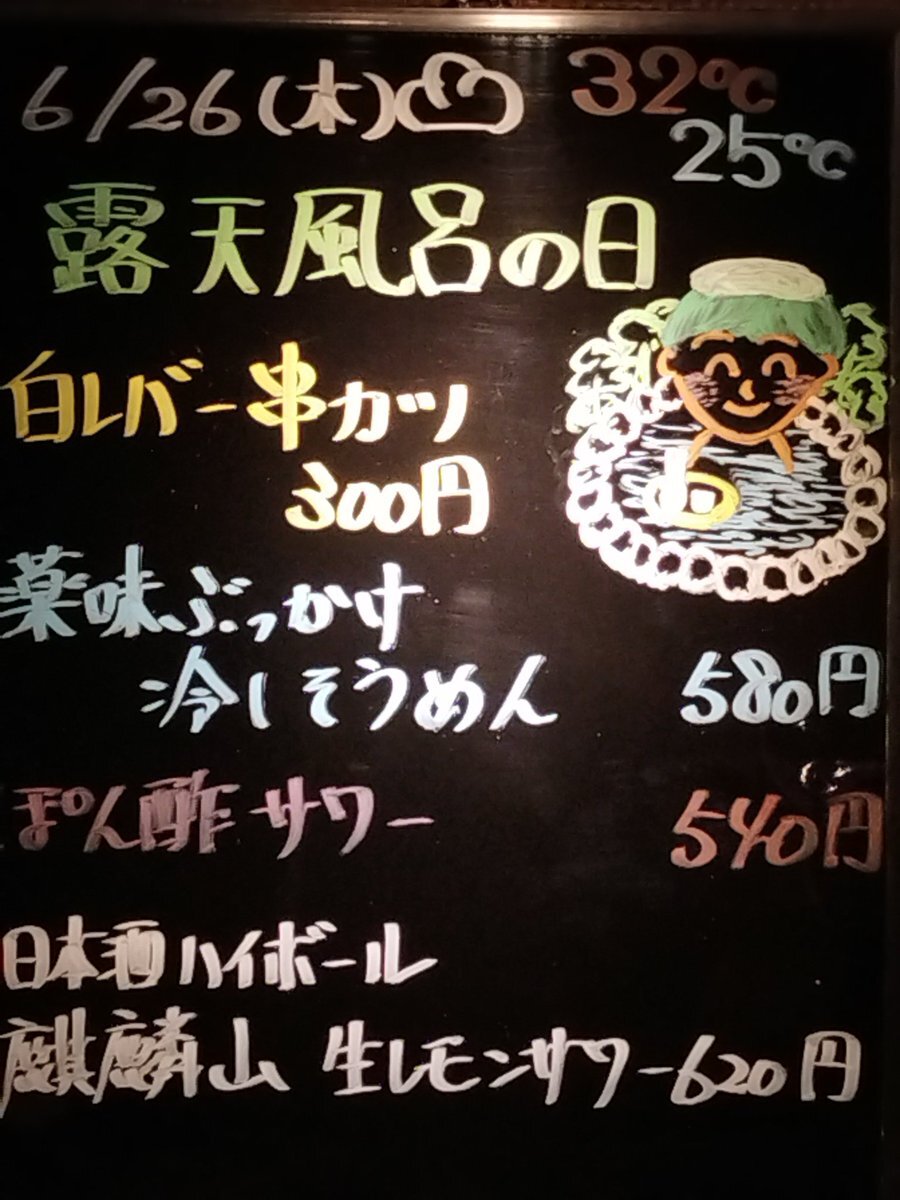 6/26(木) 32℃
25℃
露天風呂の日
白レバー串カツ
300円
薬味ぶっかけ
冷しそうめん 580円
ぽん酢サワー 540円
日本酒ハイボール
麒麟山 生レモンサワー 620円